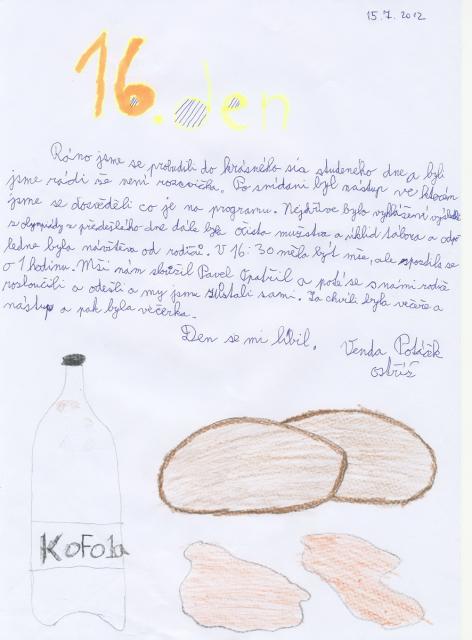 15.7.2012
16. den
Ráno jsme se probudili do krásného sis studeného dne a byli
jsme rádi že není rozcvička. Po snídani byl nástup ve kterém
jsme se dozvěděli co je na programu. Nejdříve bylo vyhlášení
z olympiády z předešlého dne dále byl očista mužstva a úklid tábora a odpo
ledne byla návštěva od rodičů. V 16:30 měla být mše, ale zpozdila se
o 1 hodinu. Mši nám sloužil Pavel a poté se s námi rodiče
rozloučili a odešli a my jsme zůstali sami. Za chvíli byla večeře a
nástup a pak byla večerka.
Den se mi líbil.
Venda Potáček
ostříž
KOFOla